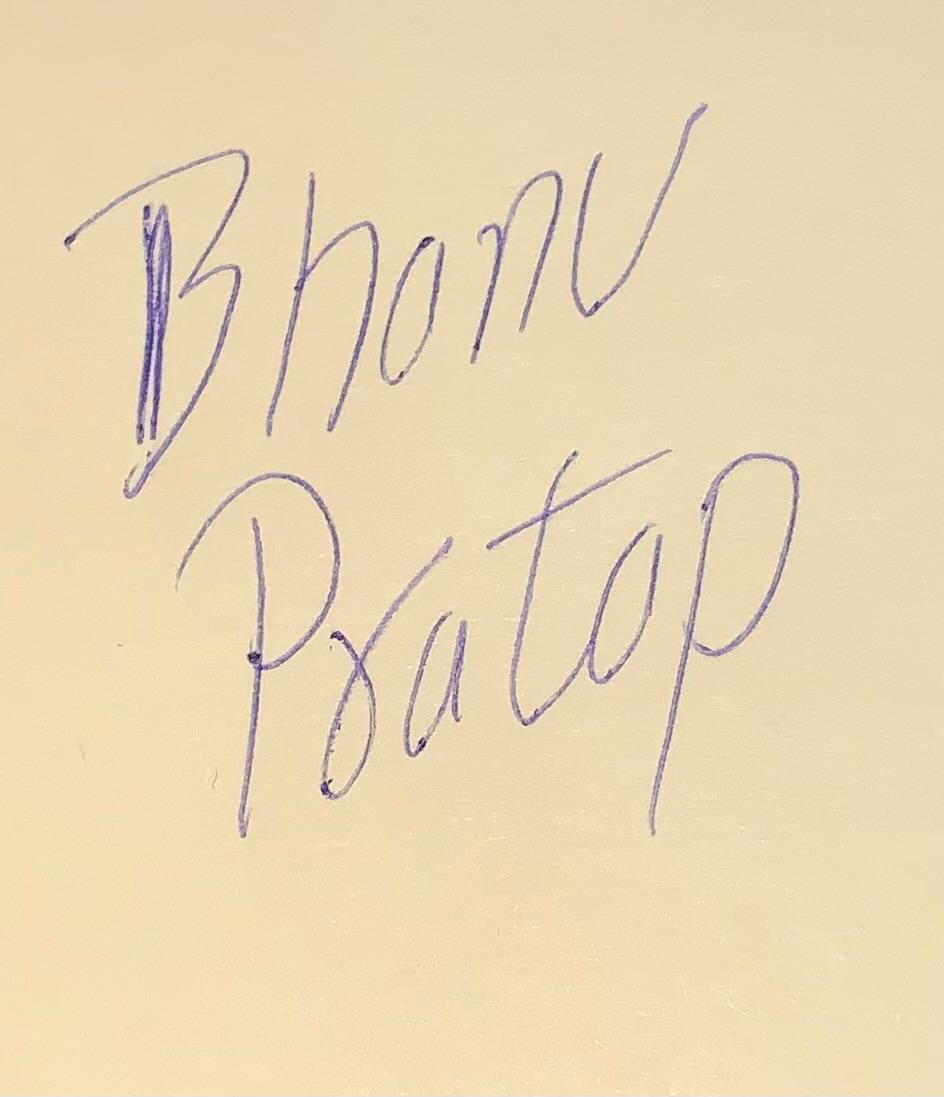 Bhanu
Pratap